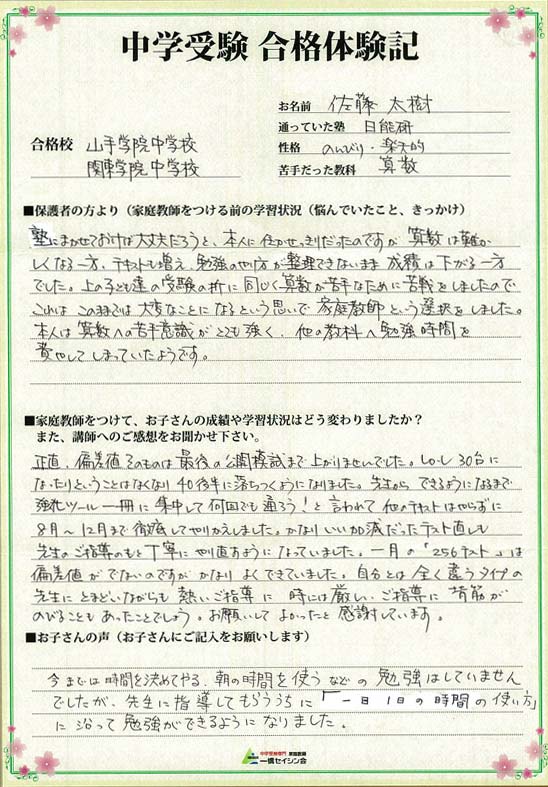 中学受験 合格体験記
お名前 佐藤 太樹
通っていた塾 日能研
合格校 山手学院中学校
性格 のんびり・楽天的
関東学院中学校
苦手だった教科 算数
■保護者の方より（家庭教師をつける前の学習状況（悩んでいたこと、きっかけ）
塾にまかせておけば大丈夫だろうと、本人に任かせっきりだったのですが 算数は難か
しくなる一方、テキストも増え、勉強のやり方が整理できないまま 成績は下がる一方
でした。上の子も達の受験の折に 同じく算数が苦手なために苦戦をしましたので
これは このままでは 大変なことになるという思いで 家庭教師という選択をしました。
本人は 算数への苦手意識がとても強く、他の教科へ勉強時間を
費やしてしまっていたようです。
■家庭教師をつけて、お子さんの成績や学習状況はどう変わりましたか？
また、講師へのご感想をお聞かせ下さい。
正直、偏差値そのものは 最後の公開模試まで上がりませんでした。しかし 30台に
なったりということはなくなり 40後半に落ちつくようになりました。先生から できるようになるまで
強化ツール一冊に集中して何回でも通ろう！と 言われて 他のテキストはやらずに
8月〜12月まで徹底してやりかえしました。かなりいい加減だったテスト直しも
先生のご指導のもと丁寧にやり直すようになっていました。一月の「256テスト」は
偏差値がでないのですが かなり よくできていました。自分とは 全く違うタイプの
先生に とまどいながらも 熱いご指導に 時には厳しいご指導に 背筋が
のびることもあったことでしょう。お願いして よかったと 感謝しています。
■お子さんの声（お子さんにご記入をお願いします）
今までは時間を決めてやる、朝の時間を使うなどの勉強はしていません
でしたが、先生に指導してもらううちに「一日1日の時間の使い方」
に沿って勉強ができるようになりました。
中学受験専門 家庭教師
一橋セイシン会